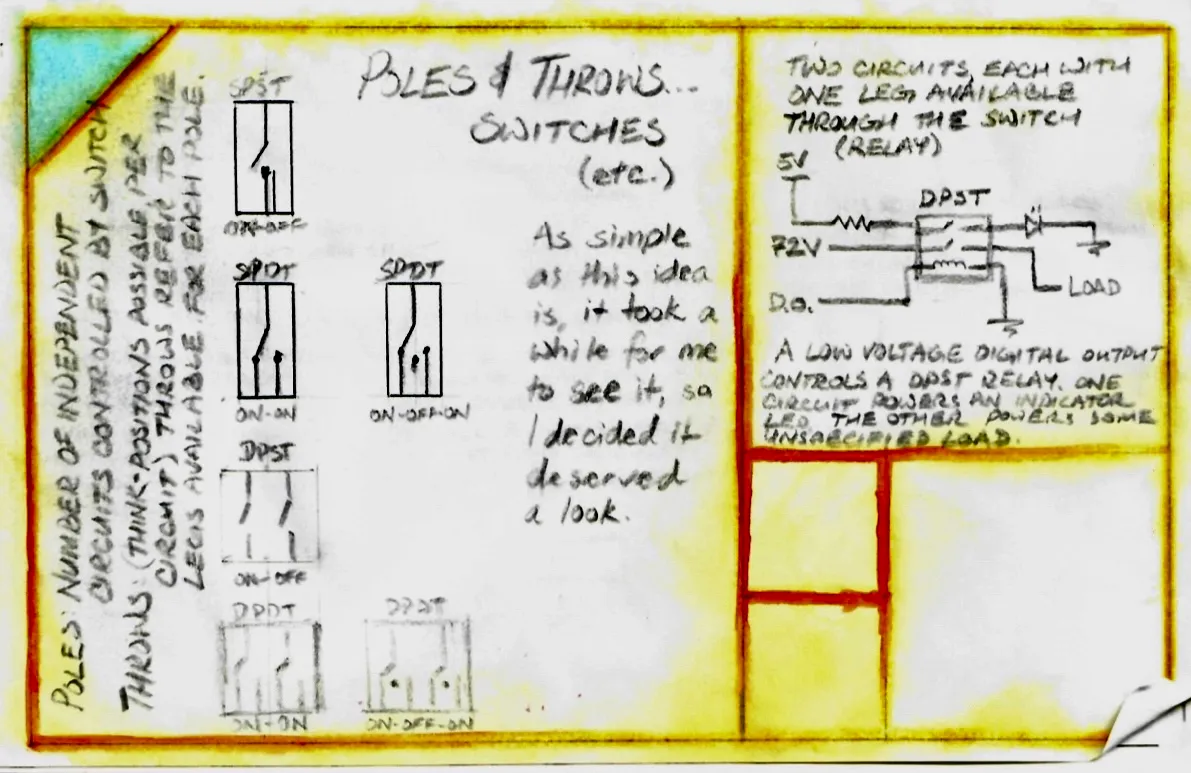 POLES: NUMBER OF INDEPENDENT
CIRCUITS CONTROLLED BY SWITCH
THROWS: (THINK-POSITIONS POSSIBLE PER
CIRCUIT) THROWS REFER TO THE
LEGS AVAILABLE FOR EACH POLE.
SPST
ON-OFF
SPDT
ON-ON
SPDT
ON-OFF-ON
DPST
ON-OFF
DPDT
ON-ON
DPDT
ON-OFF-ON
POLES & THROWS...
SWITCHES
(etc.)
As simple
as this idea
is, it took a
while for me
to see it, so
I decided it
deserved
a look.
TWO CIRCUITS, EACH WITH
ONE LEG AVAILABLE
THROUGH THE SWITCH
(RELAY)
5V
DPST
72V
D.O.
LOAD
A LOW VOLTAGE DIGITAL OUTPUT
CONTROLS A DPST RELAY. ONE
CIRCUIT POWERS AN INDICATOR
LED. THE OTHER POWERS SOME
UNSPECIFIED LOAD.